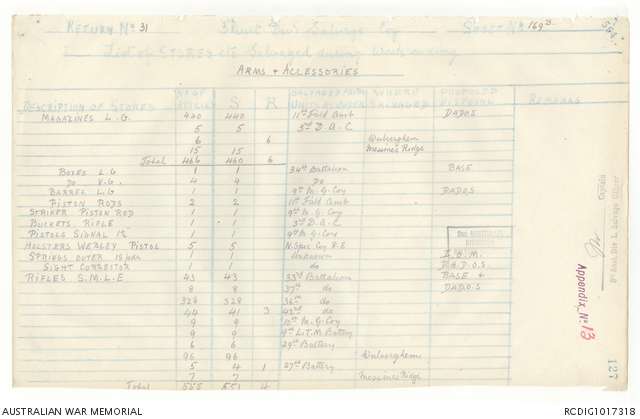 RETURN No 31 3rd Aust Div Salvage Coy SHEET No 169B
List of STORES etc Salvaged during Week ending
ARMS & ACCESSORIES
DESCRIPTION OF STORES No OF ARTICLES S R SALVAGED FROM UNITS WHERE SALVAGED PROPOSED DISPOSAL REMARKS
MAGAZINES L.G. 440 440 11th Fold Amb DADOS
5 5 3rd D.A.C
6 6 Wulverghem
15 15 Messines Ridge
Total 466 460 6
BOXES L.G 1 1 34th Battalion BASE
DO V.G. 4 4 Do
BARREL L.G 1 1 9th M.G. Coy DADOS
PISTON RODS 2 2 11th Fold Amb
STRIKER PISTON ROD 1 1 9th M.G. Coy
BUCKETS RIFLE 1 1 3rd D.A.C
PISTOLS SIGNAL 1½ 1 1 9th M.G. Coy
HOLSTERS WEBLEY PISTOL 5 5 N. Spec. Coy R.E
SPRINGS OUTER 18 pdr 1 1 Unknown I.O.M.
SIGHT CORRECTOR 1 1 do D.A.D.O.S.
RIFLES S.M.L.E 43 43 33rd Battalion BASE &
8 8 37th do DADOS
328 328 36th do
44 41 3 42nd do
9 9 10th M.G. Coy
9 9 9th L.T.M Battery
6 6 29th Battery
96 96 Wulverghem
5 4 1 27th Battery
7 7 Messines Ridge
Total 555 551 4
Captain
3rd Aust. Div. L. Salvage Officer
Appendix No 13
127
AUSTRALIAN WAR MEMORIAL RCDIG1017318